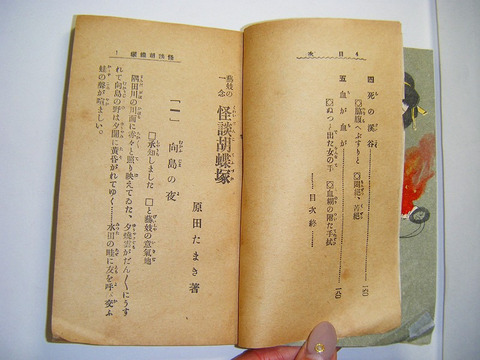 目次 4
四 死の溪谷
◎脇腹へぶすりと ◎悶絶、苦絶
五 血が血が
◎ぬつと出た女の手 ◎血糊の附た手拭
目次終
怪談胡蝶塚 1
藝妓の一念 怪談胡蝶塚
原田たまき著
「一」 向島の夜
□承知しました □と藝妓の意氣地
隅田川の川面に赤々と照り映えてゐた、夕燒雲がだん〱にうす
れて向島の野は夕闇に黄昏がれてゆく……水田の畦に友を呼び交ふ
蛙の聲が喧ましい。